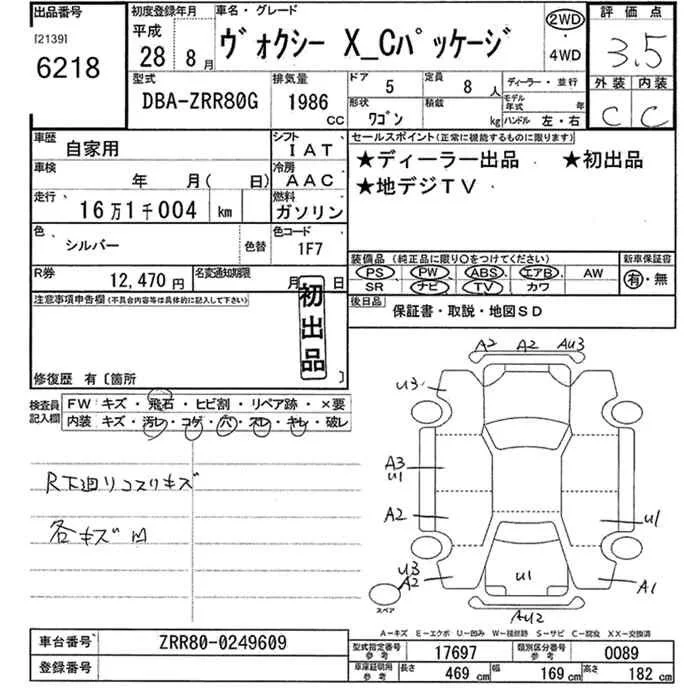 出品番号
[2139]
6218
初度登録年月
平成
28年 8月
車名・グレード
ヴォクシー X_Cパッケージ
2WD
・
4WD
評価点
3.5
外装 内装
C C
型式
DBA-ZRR80G
排気量
1986 CC
ドア 5
定員 8人
ディーラー・並行
形状 ワゴン
積載 kg
モデル年式 年
ハンドル 左・右
車歴 自家用
シフト IAT
車検 年 月( 日)
冷房 AAC
走行 16万1千004 km
燃料 ガソリン
色 シルバー 色替
色コード 1F7
R券 12,470円
名変通知期限 月 日
セールスポイント(正常に機能するものに限ります)
★ディーラー出品 ★初出品
★地デジTV
装備品 (純正品に限り○をつけてください)
PS PW ABS エアB AW
SR ナビ TV カワ
新車保証書
有・無
後日品 保証書・取説・地図SD
注意事項申告欄(不具合内容等は具体的に記入して下さい)
初出品
修復歴 有〔箇所 〕
検査員記入欄
FW キズ・飛石・ヒビ割・リペア跡・×要
内装 キズ・汚レ・コゲ・穴・スレ・キレ・破レ
R下廻リコスリキズ
各キズM
A2 A2 AU3
U3
A3
U1
A2
U1
U3
A2
U1
A1
AU2
スペア
A－キズ E－エクボ U－凹み W－補修跡 S－サビ C－腐食 XX－交換済
車台番号 ZRR80-0249609
登録番号
型式指定番号 参考 17697
類別区分番号 参考 0089
車庫証明用 参考 長さ 469 cm 幅 169 cm 高さ 182 cm